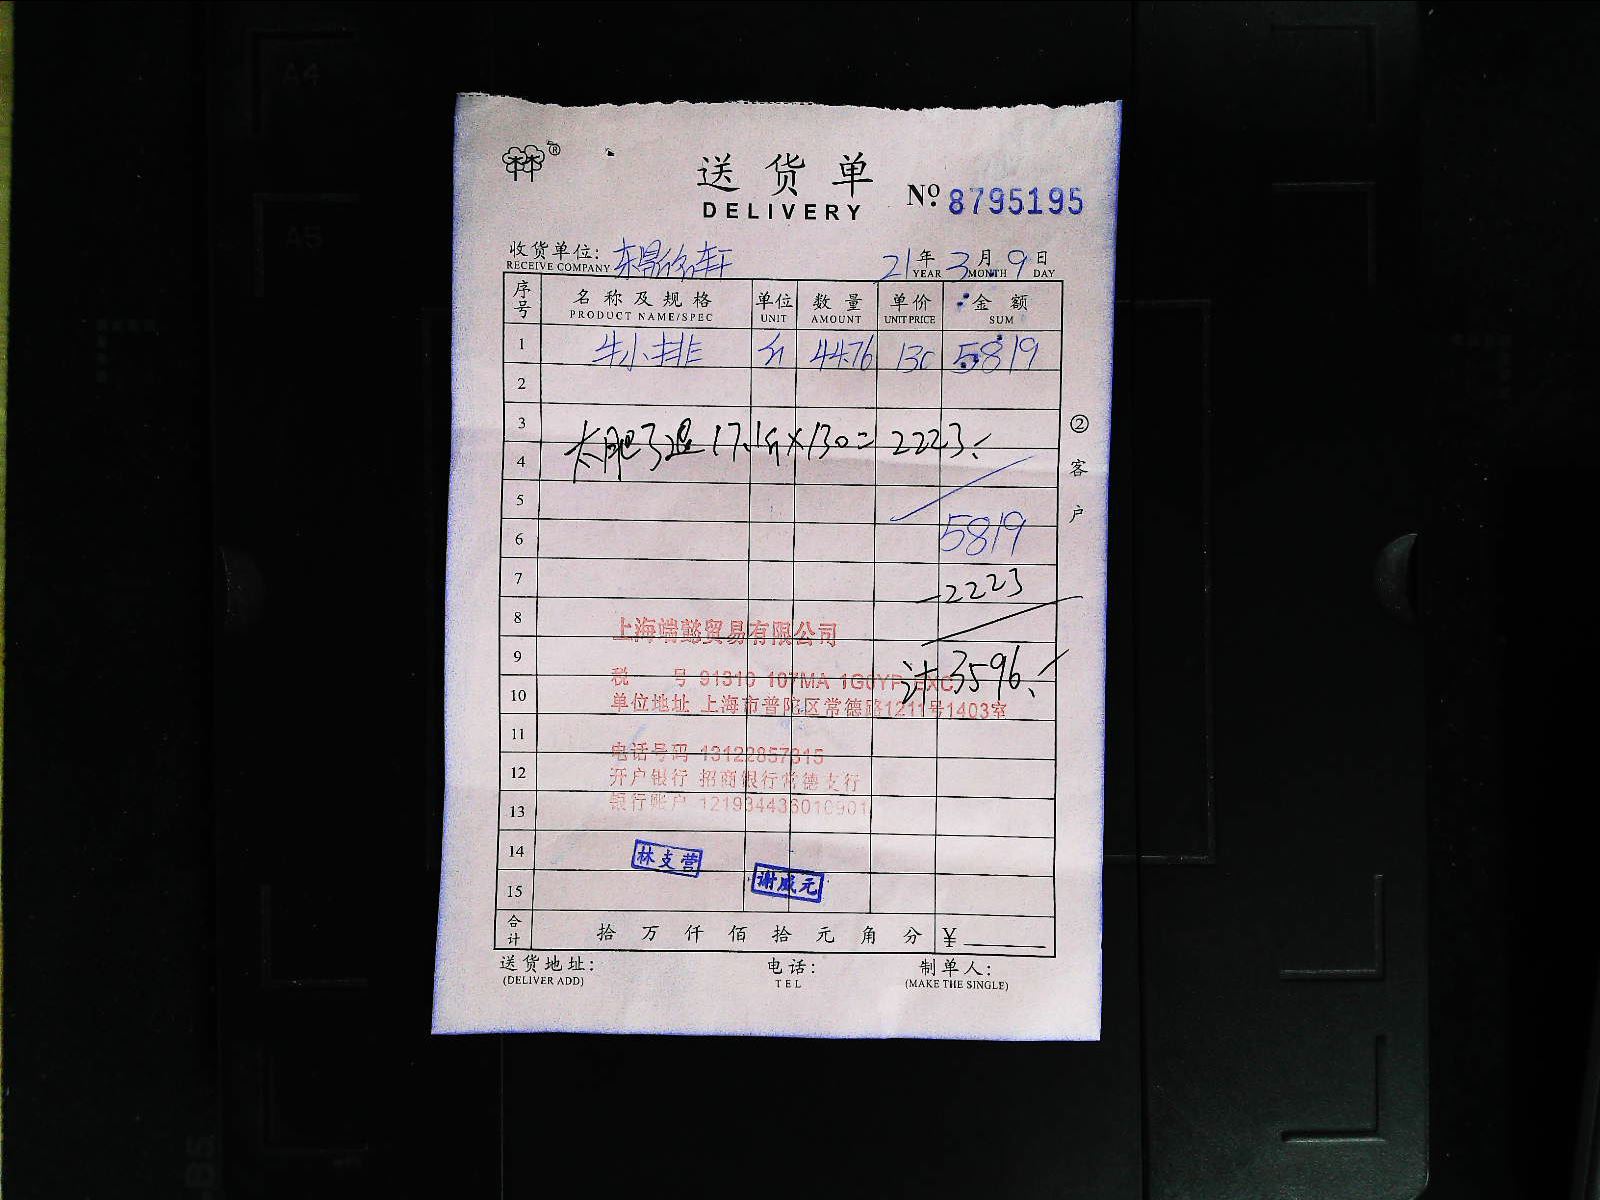 A4
A5
B5
®
送货单
DELIVERY
№ 8795195
收货单位:
RECEIVE COMPANY
21年 3月 9日
YEAR MONTH DAY
序号 名称及规格 单位 数量 单价 金额
PRODUCT NAME/SPEC UNIT AMOUNT UNIT PRICE SUM
1 牛小排 斤 44.76 130 5819
2
3 太肥了退17.1斤×130=2223.
4
5
6 5819
7 -2223
8 上海端懿贸易有限公司
9 计3596.
税 号 91310 107MA 1G0YP EXC
10 单位地址 上海市普陀区常德路1211号1403室
11
电话号码 13122857315
12 开户银行 招商银行常德支行
13 银行账户 121934436010901
14 林支营
15 谢威元
合计 拾 万 仟 佰 拾 元 角 分 ¥
② 客户
送货地址: 电话: 制单人:
(DELIVER ADD) TEL (MAKE THE SINGLE)